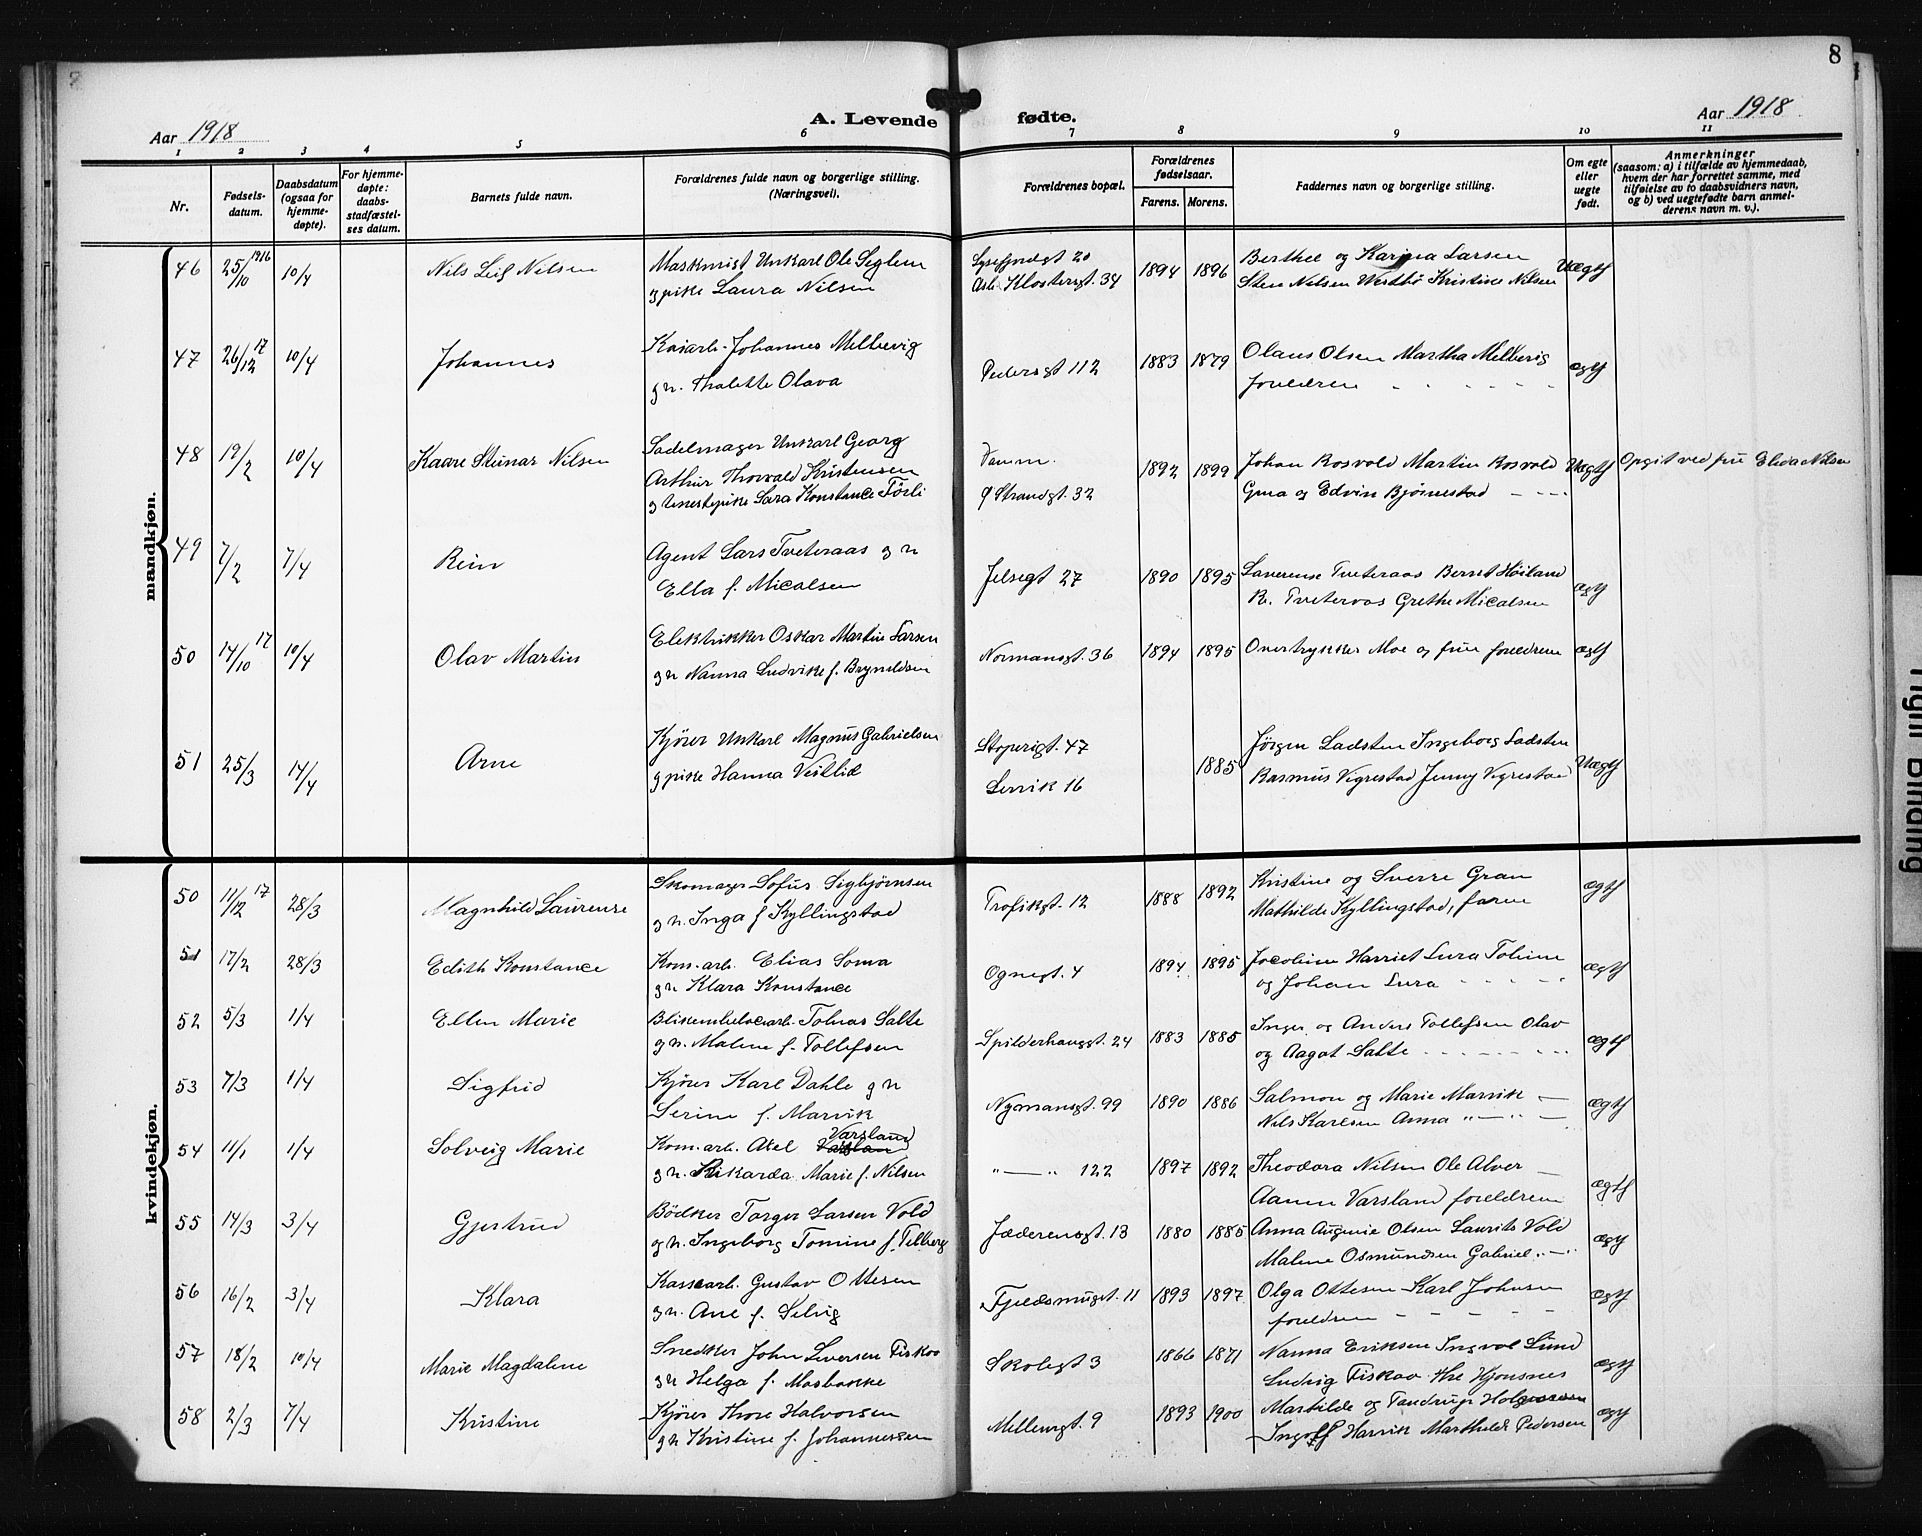 8
Aar 1918 A. Levende fødte. Aar 1918
1 2 3 4 5 6 7 8 9 10 11
Nr.
Fødsels-
datum.
Daabsdatum
(ogsaa for
hjemme-
døpte).
For hjemme-
døpte:
daabs-
stadfæstel-
ses datum.
Barnets fulde navn.
Forældrenes fulde navn og borgerlige stilling.
(Næringsvei).
Forældrenes bopæl.
Forældrenes
fødselsaar.
Farens. Morens.
Faddernes navn og borgerlige stilling.
Om egte
eller
uegte
født.
Anmerkninger
(saasom: a) i tilfælde av hjemmedaab,
hvem der har forrettet samme, med
tilføielse av to daabsvidners navn,
og b) ved uegtefødte barn anmel-
derens navn m. v.).
mandkjøn.
46 25/10 1916 10/4 Nils Leif Nilsen
Maskinist Unkarl Ole Seglem
g pike Laura Nilsen
20
Klostergt. 34
1894 1896
Berthe og Karina Larsen
Sten Nilsen Westbö Kristine Nilsen
Uægtf
47 26/12 17 10/4 Johannes
Kaiarb. Johannes Melbervig
g h. Thalette Olava
Pedersgt 112
1883 1879
Olaus Olsen Martha Melberig
foreldren
ægtf
48 19/2 10/4 Kaare Steinar Nilsen
Sadelmager Unkarl Georg
Arthur Thorvald Kristensen
g tjenestepike Sara Konstance Förli
Ø Strandgt. 32
1892 1899
Johan Rosvold Martin Rosvold
Gina og Edvin Bjørnestad
Uægtf
Opgit ved fru Elida Nilsen
49 7/2 7/4 Rein
Agent Lars Tveteraas g h
Ella f. Micalsen
Jelsegt 27
1890 1895
Laurense Tveteraas Berret Höiland
R. Tveteraas Grethe Micalsen
ægtf
50 14/10 17 10/4 Olav Martin
Elektrikker Oskar Martin Larsen
g h Nanna Ludvike f. Bryneldsen
Normansgt. 36
1894 1895
Overtrykker Moe og frue foreldrene
ægtf
51 25/3 14/4 Arne
Kjører Unkarl Magnus Gabrielsen
g pike Hanna Vestlid
47
Lervik 16
1885
Jörgen Ladsten Ingeborg Ladsten
Rasmus Vigrestad Jenny Vigrestad
Uægtf
kvindekjøn.
50 11/12 17 28/3 Magnhild Laurense
Skomager Sofus Sigbjørnsen
g h. Inga f Kyllingstad
Trofikgt. 12
1888 1892
Kristine og Sverre Gran
Mathilde Kyllingstad, faren
ægtf
51 17/2 28/3 Edith Konstance
Kom.arb. Elias Soma
g h Klara Konstance
Ognegt. 4
1894 1895
Jocobine Harriet Lura Toline
og Johan Lura
ægtf
52 5/3 1/4 Ellen Marie
Blikemballagearb. Tobias Salte
g h. Malene f. Tollefsen
Spilderhaugst. 24
1883 1885
Inger og Anders Tollefsen Olav
og Aagot Salte
ægtf
53 7/3 1/4 Sigfrid
Kjører Karl Dahle g h
Serine f. Marvik
Nymansgt. 99
1890 1886
Salmon og Marie Marvik —
Nils Karlsen Anna " — " —
ægtf
54 11/1 1/4 Solveig Marie
Kom.arb. Axel Varsland
g h. Rikarda Marie f. Nilsen
" — " 122
1897 1892
Theodora Nilsen Ole Alver —
Aanen Varsland foreldrene
ægtf
55 14/3 3/4 Gjertrud
Bödker Torger Larsen Vold
g h. Ingeborg Tomine f. Telberg
Jæderensgt. 13
1880 1885
Anna Augenie Olsen Laurits Vold
Malene Osmundsen Gabriel " — "
ægtf
56 16/2 3/4 Klara
Kassearb. Gustav Ottesen
g h. Ane f. Selvig
Fjeldsmugst. 11
1893 1897
Olga Ottesen Karl Johnsen
foreldren
ægtf
57 18/2 10/4 Marie Magdalene
Snedker John Seversen Fiskaa
g h Helga f. Mosbakke
Skolegt 3
1866 1871
Nanna Eriksen Ingval Lund
Ludvig Fiskaa Hjonsnes
ægtf
58 2/3 7/4 Kristine
Kjører Thore Halvorsen
g h Kristine f. Johannessen
Mellemgt. 9
1893 1900
Martilde og Tandrup Halvorsen
Ingolf Harvik Marthilde Pedersen
ægtf
Binding